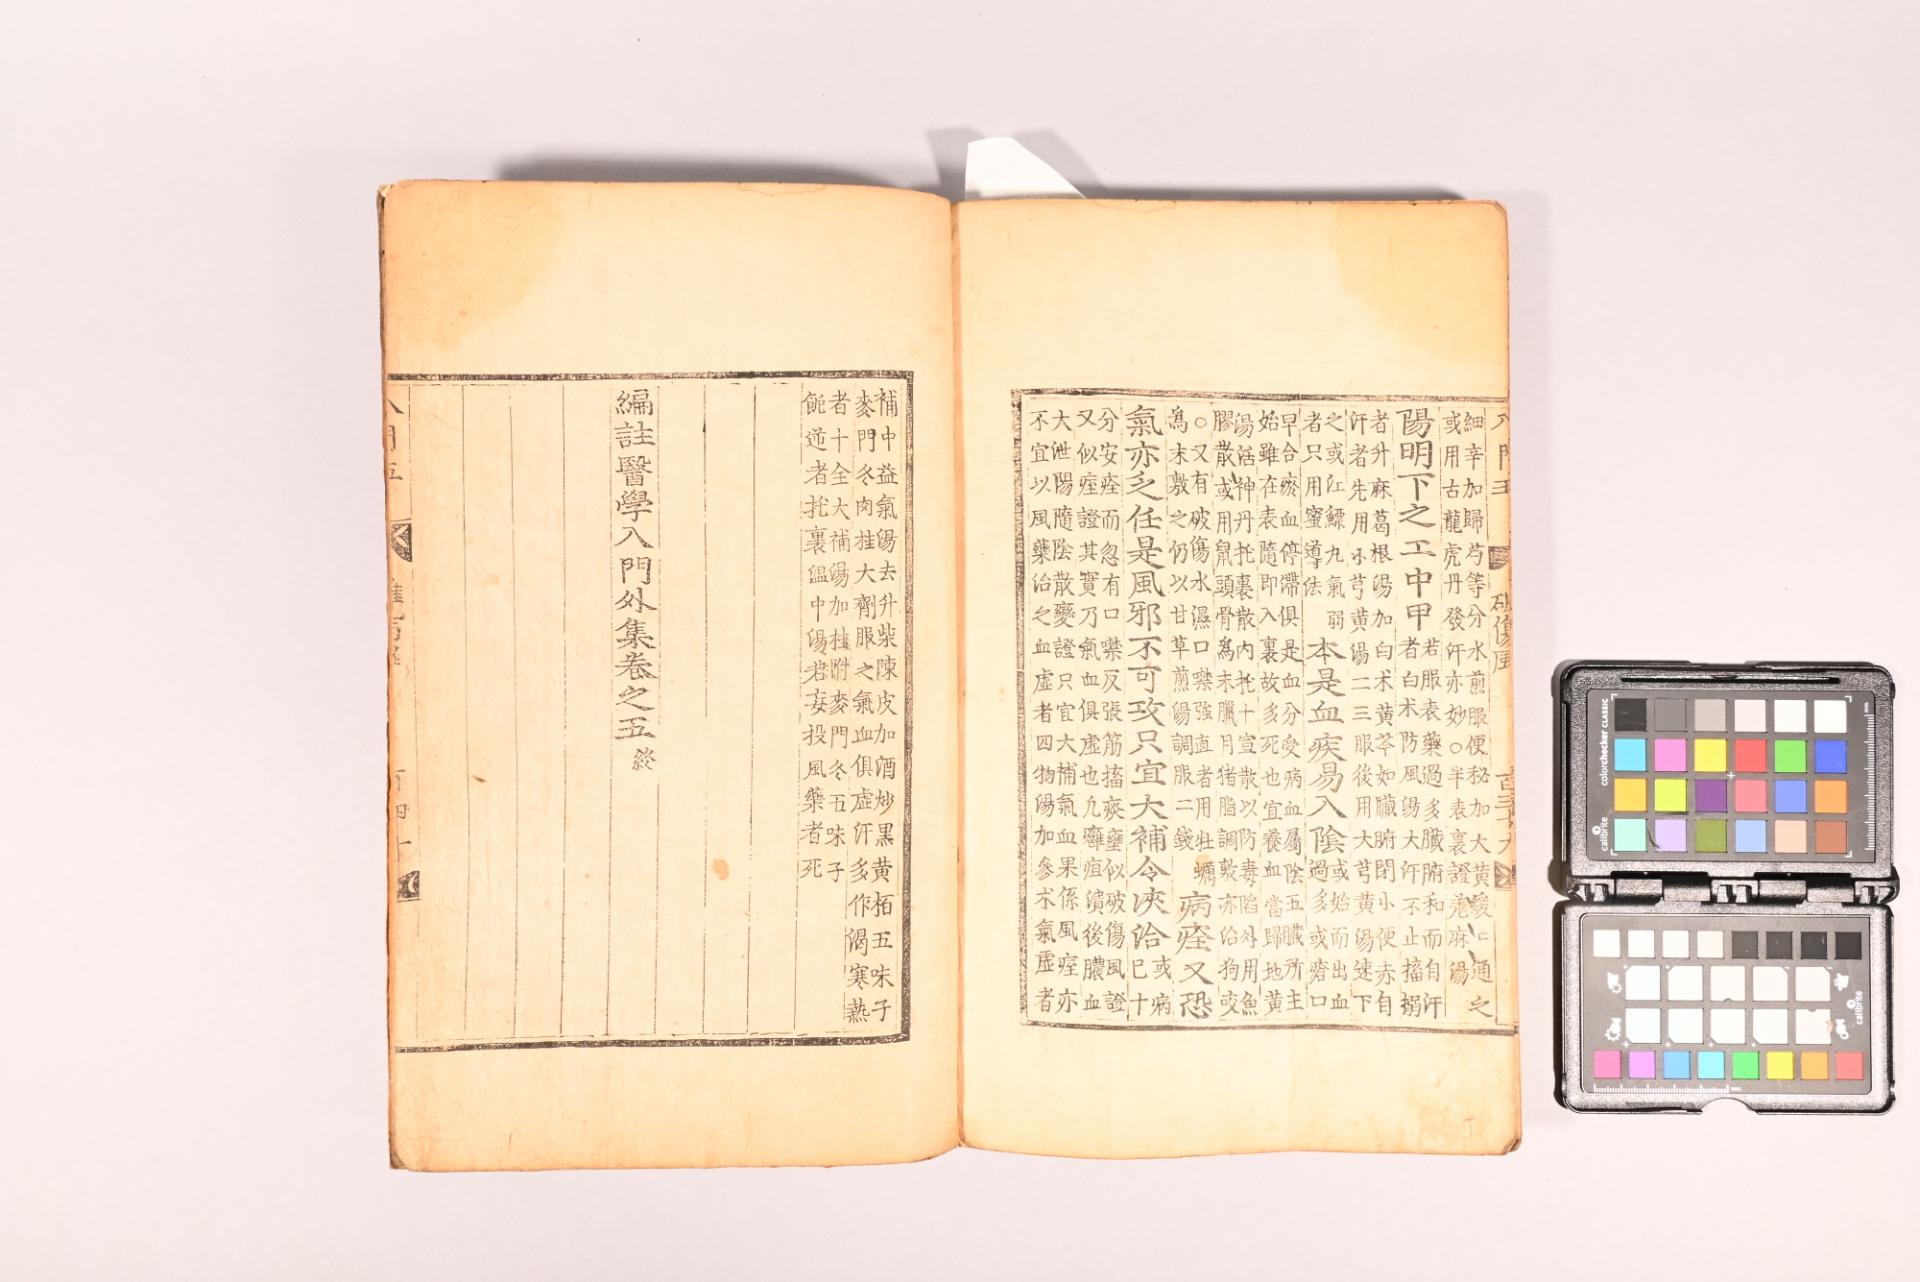 細辛加歸芍等分水煎服便秘加大黃緩緩通之
或用古龍虎丹發汗亦妙○半表裏證羗麻湯
陽明下之工中甲
若服表藥過多臟腑和而自汗
者白术防風湯大汗不止搐搦
者升麻葛根湯加白术黃芩如臟腑閉小便赤自
汗者先用小芎黃湯二三服後用大芎黃湯速下
之或江鰾丸氣弱
者只用蜜導法
本是血疾易入陰
或始而出血
過多或瘡口
早合瘀血停滯俱是血分受病血屬陰五臟所主
始雖在表隨即入裏故多死也宜養血當歸地黃
湯活神丹托裏散內托十宣散以防毒陷外用魚
膠散或用鼠頭骨爲末臘月猪脂調敷亦治狗咬
○又有破傷水濕口噤強直者用牡蠣
爲末敷之仍以甘草煎湯調服二錢
病痓又恐
氣亦乏任是風邪不可攻只宜大補令浹洽
或病
已十
分安痊而忽有口噤反張筋搐痰壅似破傷風證
又似痓證其實乃氣血俱虛也凡癰疽潰後膿血
大泄陽隨陰散變證只宜大補氣血果係風痓亦
不宜以風藥治之血虛者四物湯加參术氣虛者
破傷風
補中益氣湯去升柴陳皮加酒炒黑黃栢五味子
麥門冬肉桂大劑服之氣血俱虛汗多作渴寒熱
者十全大補湯加桂附麥門冬五味子
飥逆者托裏溫中湯若妄投風藥者死
編註醫學入門外集卷之五 終